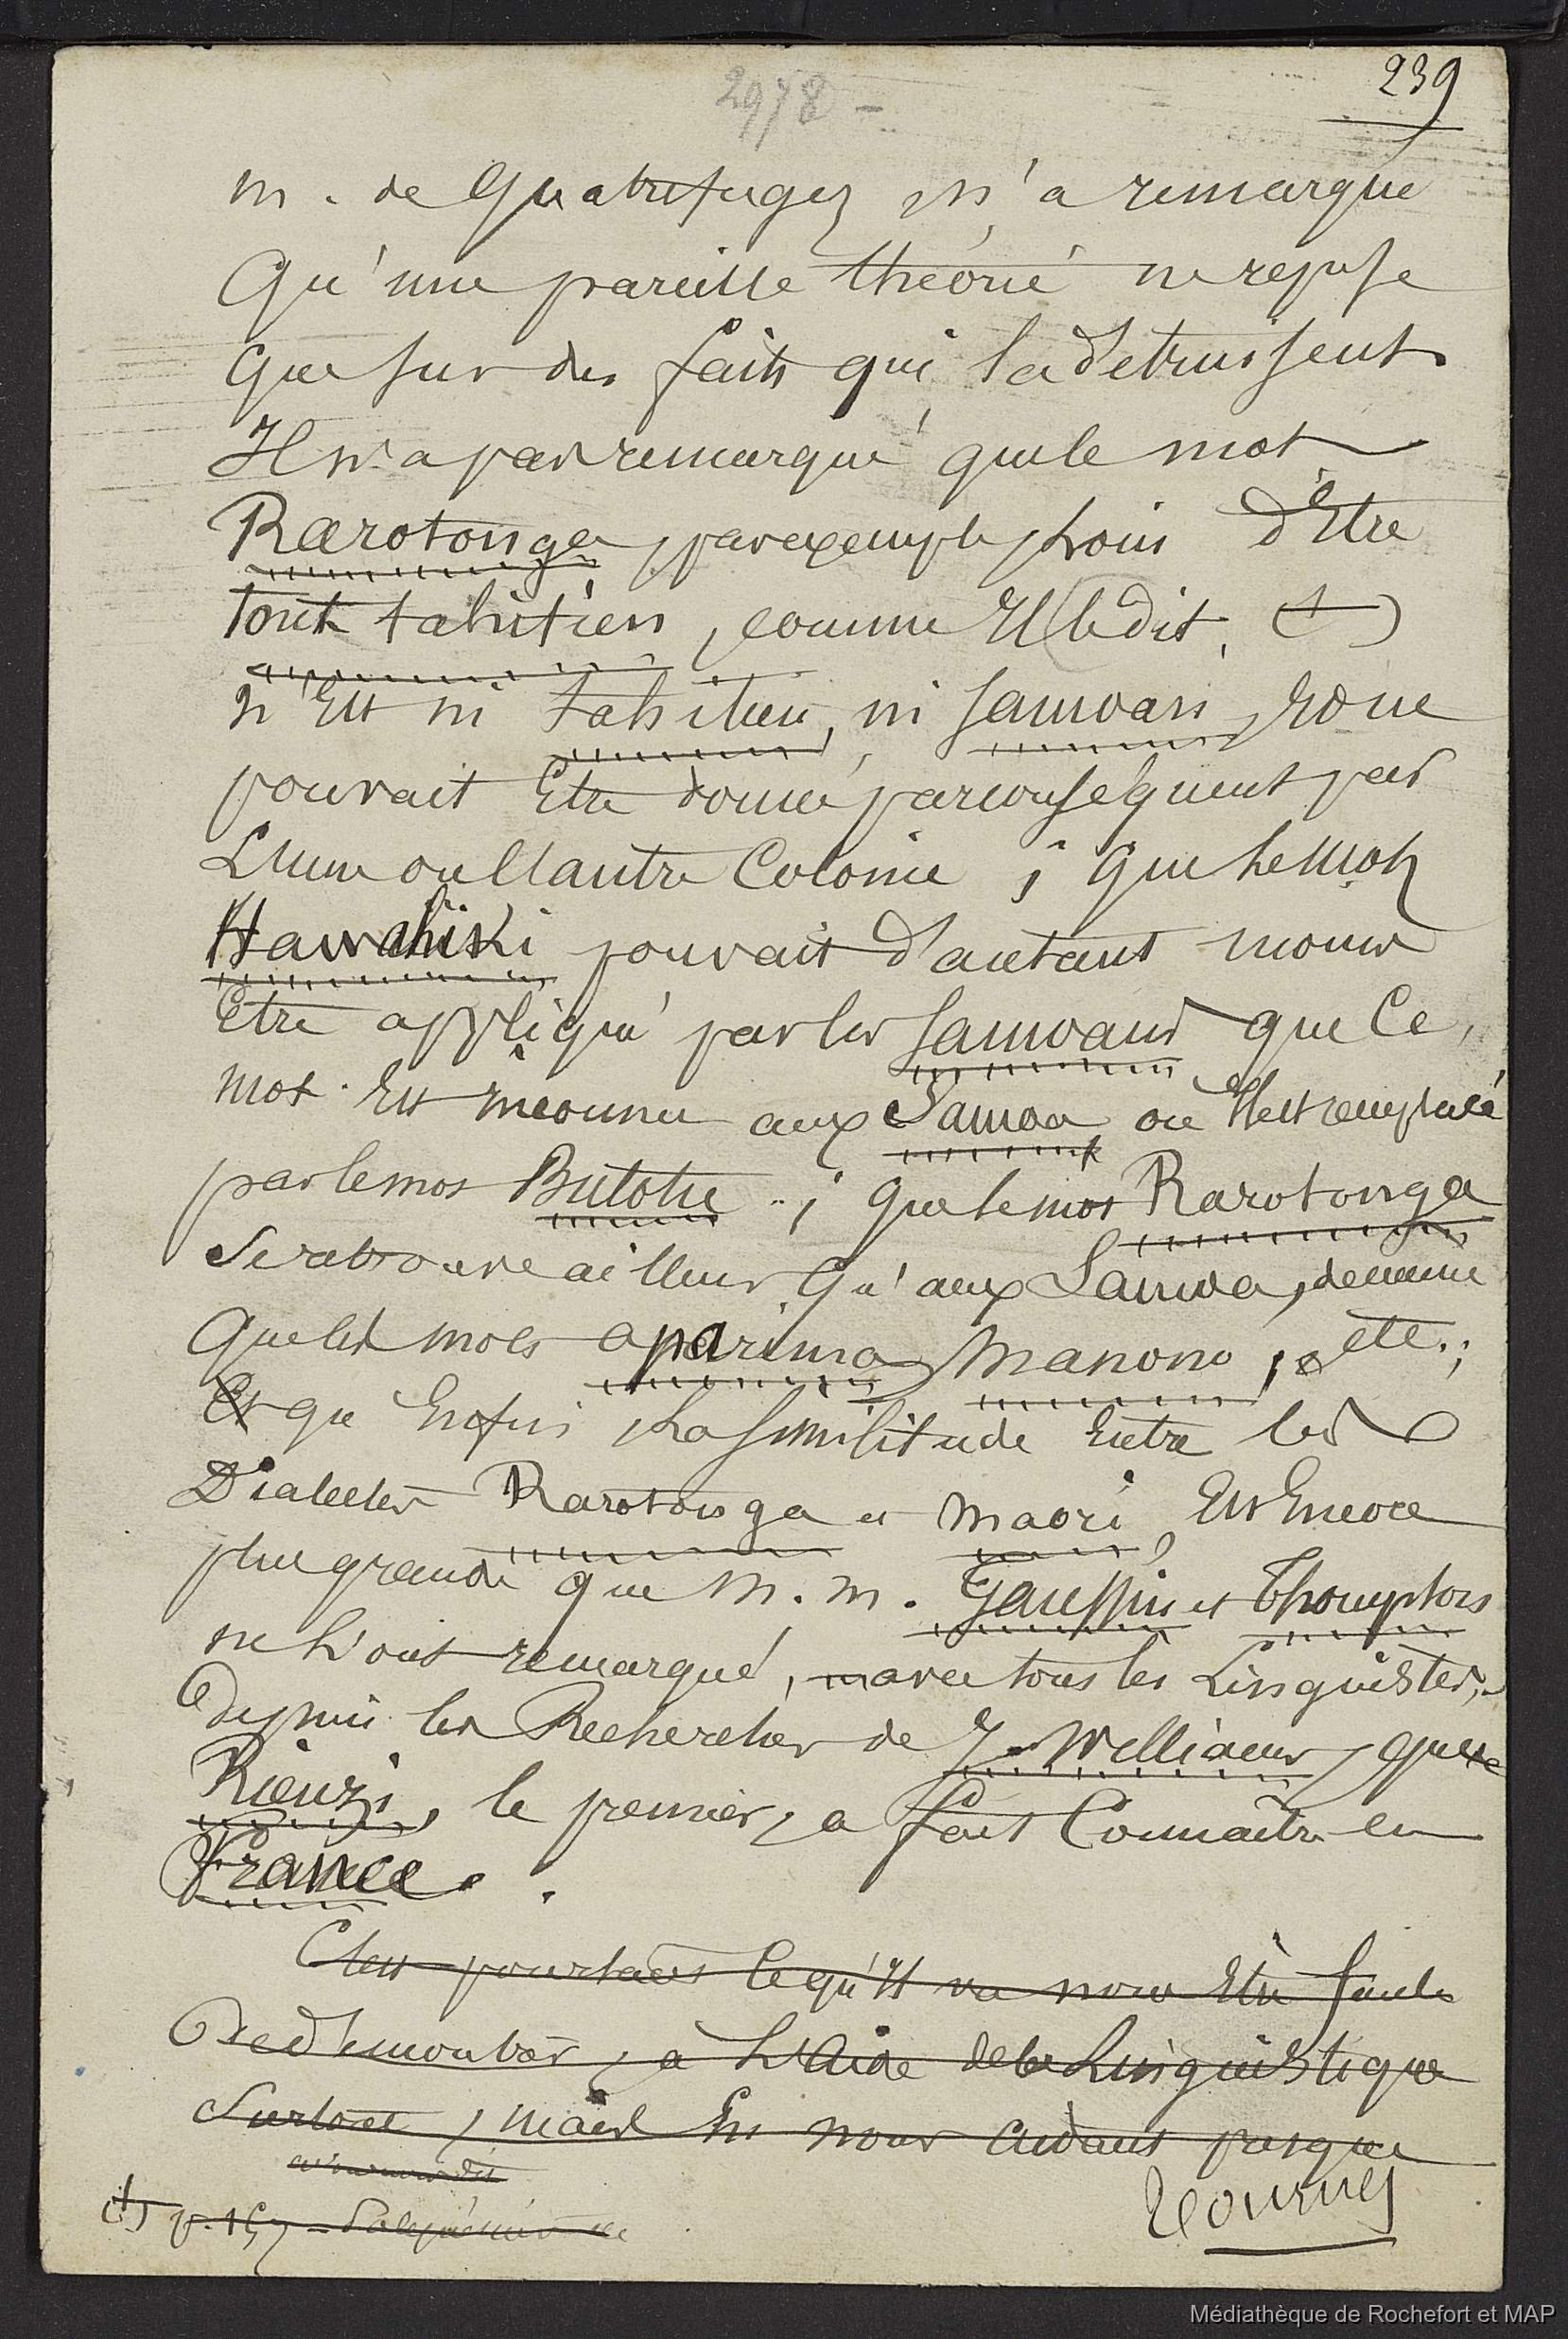 239
2978 -
M. de Quatrefages, n'a remarqué
Qu'une pareille théorie ne repose
Que sur des faits qui la détruisent
Il n'a pas remarqué que le mot
Rarotonga, par exemple, loin d'Etre
tout tahitien, comme Il le dit, (+)
n'Est ni tahitien, ni Samoan, & ne
pouvait Etre donné par conséquent par
L'une ou l'autre Colonie ; que le mot
Hawahiki pouvait d'autant moins
Etre appliqué par les Samoans que Ce
mot Est inconnu aux Samoa où Il est remplacé
par le mot Bulotu ; que le mot Rarotonga
Se retrouve ailleurs Qu'aux Samoa, de même
Que les mots aparima, manono, etc. ;
Et qu'Enfin, La similitude Entre les
Dialectes Rarotonga et Maori, Est Encore
plus grande que M. M. Gaussin et Thompson
ne L'ont remarqué, avec tous les Linguistes,
depuis les Recherches de J. Williams, que
Rienzi, le premier, a fait Connaître en
France.
C'est pourtant Ce qu'Il va nous Etre facile
De démontrer, à L'Aide de la Linguistique
Surtout, mais En nous aidant presque
(+) p. 157 - Polynésiens
Tournez
Médiathèque de Rochefort et MAP